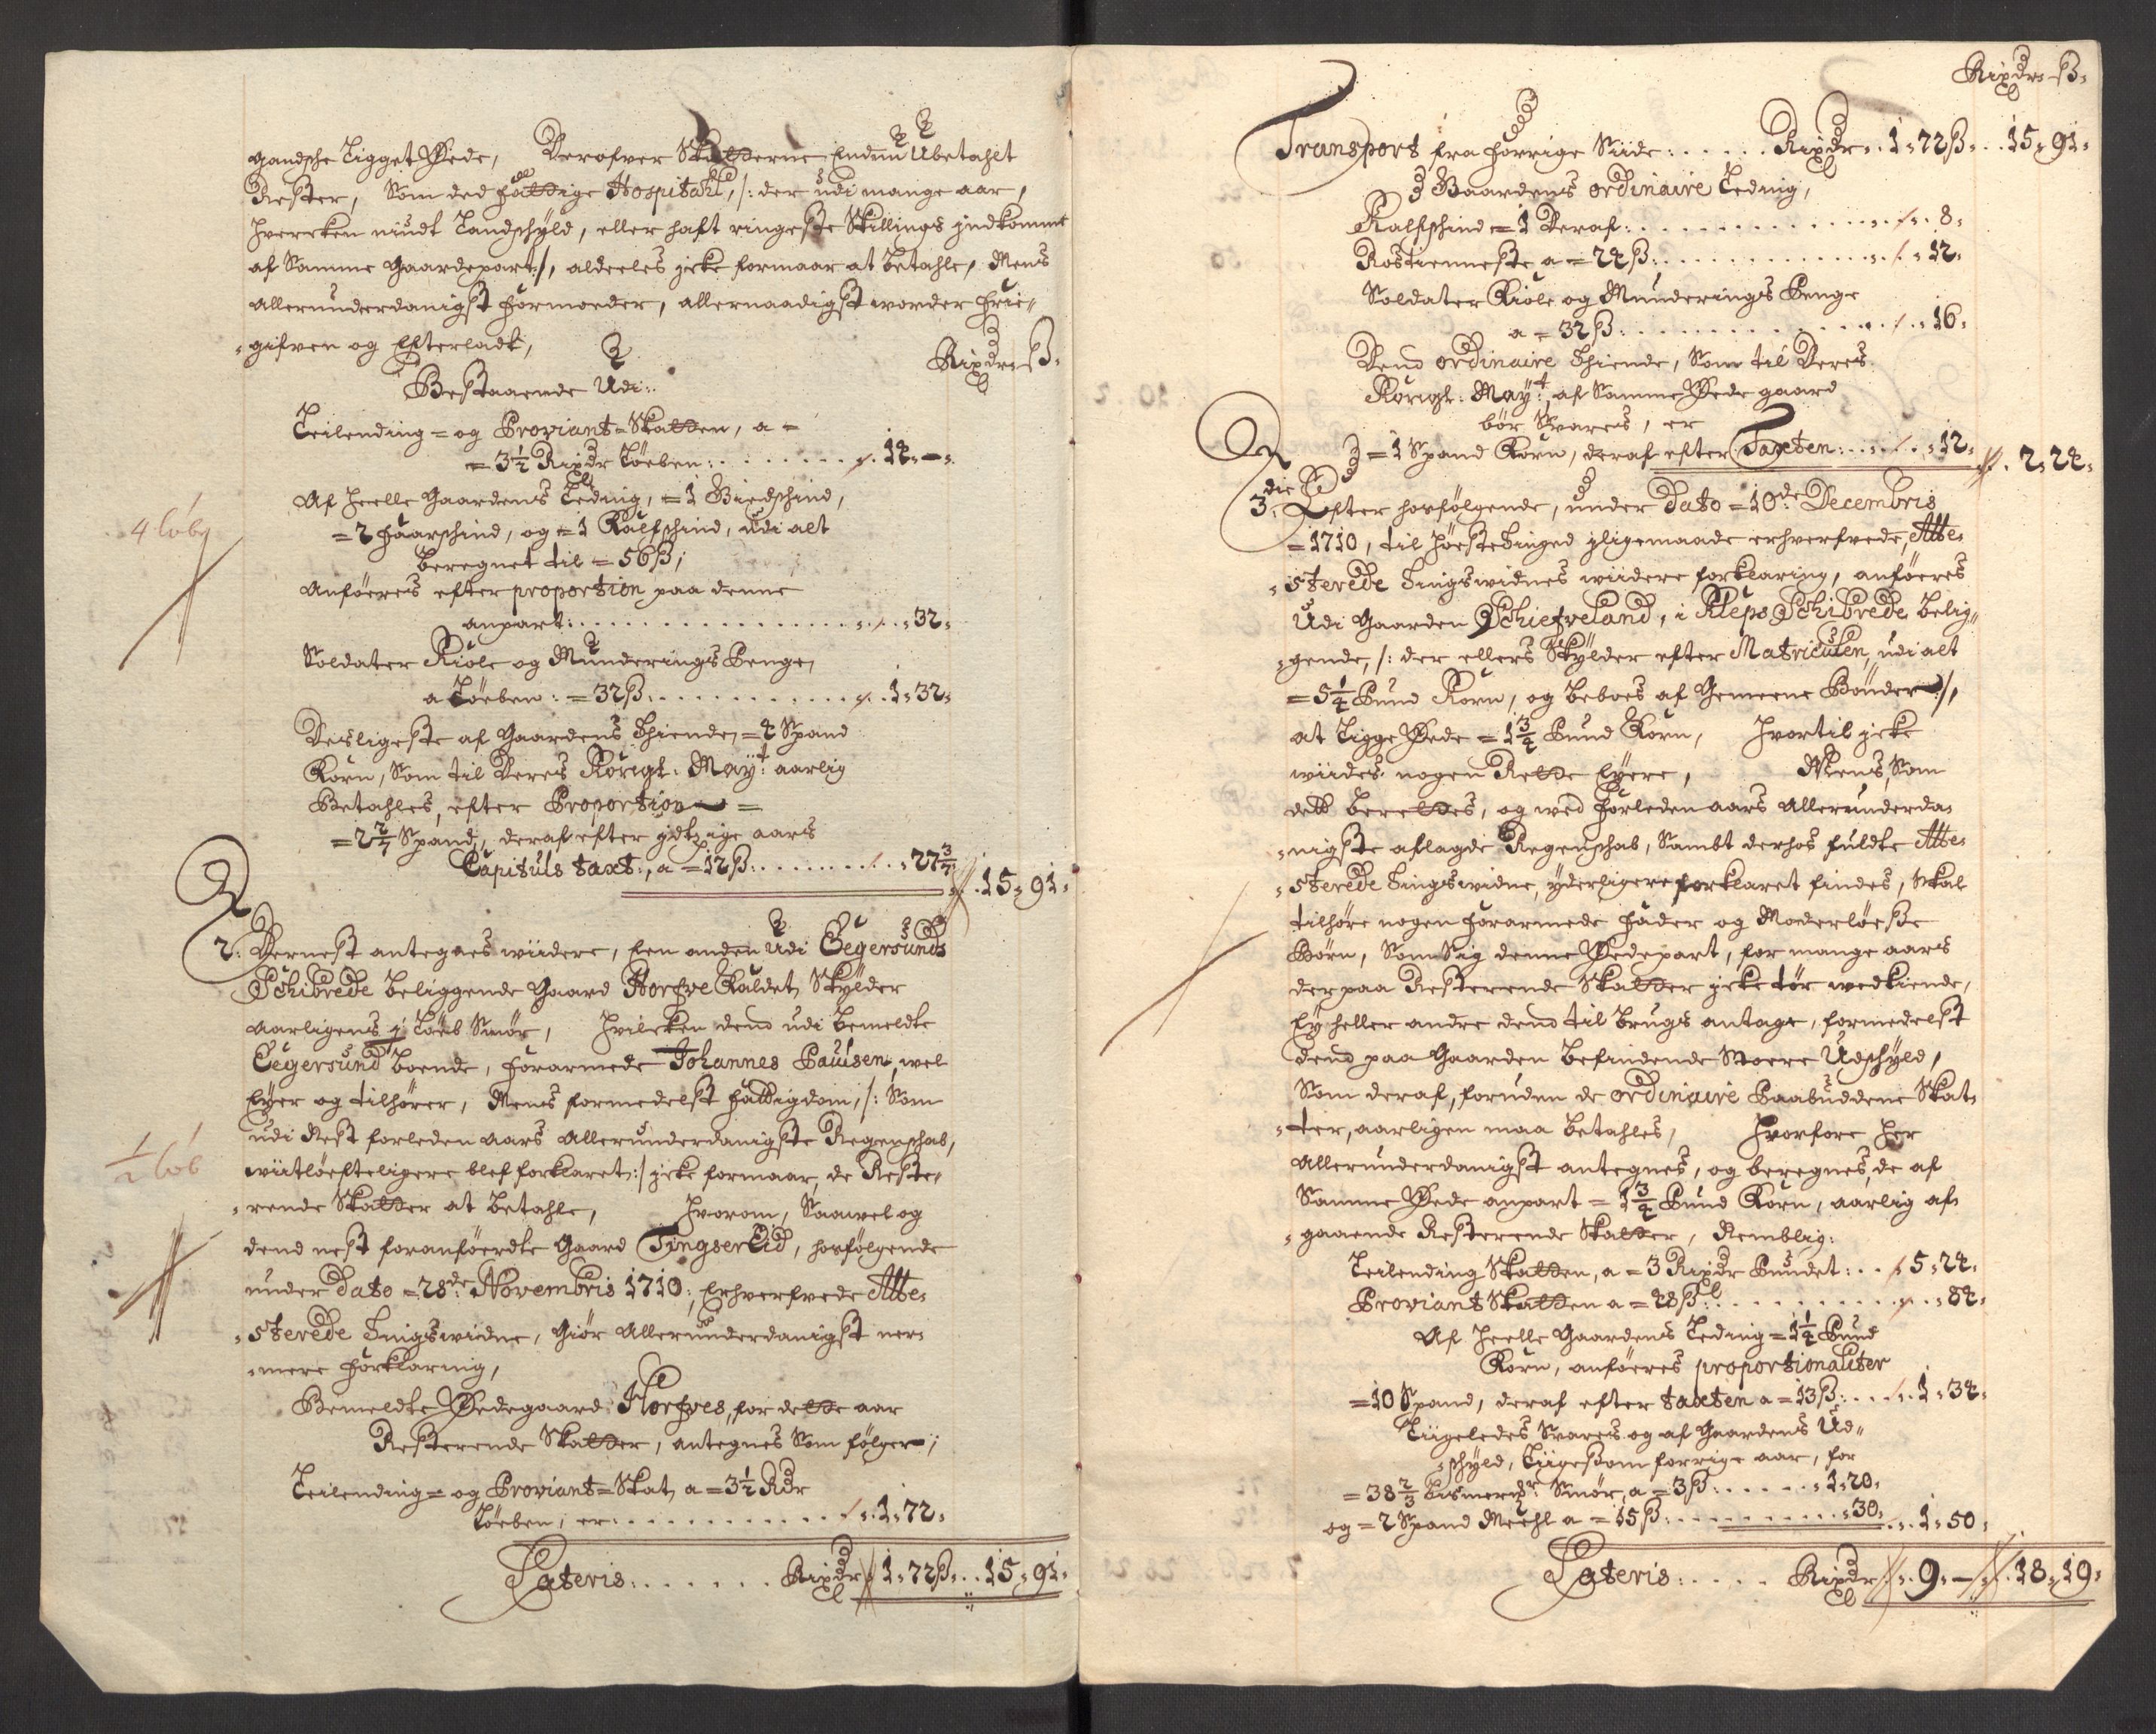 gandsche Ligget Øede, Derofver Skatterne Endnu Ubetahlt
Rester, Som ded fattige Hospitahl, /: der udi mange aar,
hvercken niudt Landschyld, eller haft ringeste Skillings jndkomme
af Samme Gaardepart:/, aldeeles jcke formaar at betahle, Mens
allerunderdanigst formoeder, allernaadigst worder frie-
-gifven og Efterladt,
Rixdr ß
Bestaaende Udi:
Leilending- og Proviant-Skatten, a =
= 3½ Rixdr Løeben: . . . . . . . 12 - —
4 løb
Af heelle Gaardens Leding, = 1 Biedschind,
= 2 faarschind, og = 1 Kalfschind, udi alt
beregnet til = 56 ß;
Anføeres efter proportion paa denne
anpart: . . . . . . . . . . . . . . . 32-
Soldater Kiole og Munderings Penge,
a Løeben: = 32 ß: . . . . . . . . . . . 1- 32-
Desligeste af Gaardens Thiende, = 4 Spand
Korn, Som til Deres Kongl: May:t aarlig
Betahles, efter Proportion =
= 2 2/7 Spand, deraf efter jdtzige aars
Capituls taxt:, a = 12 ß: . . . . . . . . 27 3/7 15- 91-
2: Dernest antegnes wiidere, Een anden Udi Eegersunds
Schibrede beliggende Gaard Horfve Kaldet, Skylder
Aarligens j Løeb Smør, hvilcken dend udi bemeldte
Eegersund boende, forarmede Johannes Paulsen, wel
Eyer og tilhører, Mens formedelst fattigdom, /: Som
udi Nest forleden aars allerunderdanigste Regenschab,
½ løb
wiitløefteligere blef forklaret:/ jcke formaar, de Reste-
-rende Skatter at betahle, hvorom, Saavel og
dend nest foranføerdte Gaard Tingsereid, hosfølgende
under Dato = 28de: Novembris 1710: Erhverfvede Atte-
-sterede Tingswidne, Giør Allerunderdanigst ner-
-mere forklaring,
Bemeldte Ødegaard Horfves, for dette aar
Resterende Skatter, antegnes Som følger;
Leilending- og Proviant-Skat, a = 3½ Rdr
Løeben, er: . . . . . . . . . . . . 1- 72-
Lateris: . . . . . . Rixdr 1- 72 ß - . 15- 91-
Rixdr- ß-
Transport fra forrige Siide: . . . . . Rixdr . 1- 72 ß - . . 15- 91-
Gaardens ordinaire Leding,
Kalfschind = 1 Deraf: . . . . . . . . . . . . . . 8-
Rostienneste a = 24 ß: . . . . . . . . . . . . . 12-
Soldater Kiole og Munderings Penge
a = 32 ß: . . . . . . . . . . . . . . 16-
Dend ordinaire Thiende, Som til Deres
Kongl: May:t, af Samme Øede gaard
bør Svares, er
= 1 Spand Korn, deraf efter Taxten: . . . . 12- . 2- 24-
3die: Efter hosfølgende, under Dato = 10de: Decembris
= 1710, til høesteTinged jligemaade erhverfvede, Atte-
-sterede Tingswidnes wiidere forklaring, anføeres
Udi Gaarden Schiefveland, i Kleps Schibrede belig-
-gende, /: der ellers Skylder efter Matriculen, udi alt
= 5¼ Pund Korn, og beboes af Gemeene Bønder :/,
at Ligge Øede = 1¾ Pund Korn, hvortil jcke
wiides nogen Rette Eyere, Mens, Som
dett berettes, og wed forleden aars Allerunderda-
-nigste aflagde Regenschab, Sambt derhos fuldte Atte-
-sterede Tingswidne, yderligere forklaret findes, Skal
tilhøre nogen forarmede fader og Moderløesse
Børn, Som Sig denne Øedepart, for mange aars
derpaa Resterende Skatter jcke tør wedkiende,
Ey heller andre dend til brugs antage, formedelst
dend paa Gaarden befindende Stoere Udschyld,
Som deraf, foruden de ordinaire Paabuddene Skat-
-ter, aarligen maa betahles, hvorfore her
Allerunderdanigst antegnes, og beregnes, de af
Samme Øede anpart = 1¾ Pund Korn, aarlig af-
-gaaende Resterende Skatter, Nemblig:
Leilending Skatten, a = 3 Rixdr Pundet: . . 5- 24-
Proviant Skatten a = 48 ß: . . . . . . . . . . . 84-
Af heelle Gaardens Leding = 1¼ Pund
Korn, anføeres proportionaliter
= 10 Spand, deraf efter taxten a = 13 ß: . . . . 1- 34-
Liigeledes Svares og af Gaardens Ud-
-schyld, Liigesom forrige aar, for
= 38 2/3 Bismerpd: Smør, a = 3 ß: . . . . . 1- 20-
og = 2 Spand Meehl a = 15 ß: . . . . . . . . . 30- . . 1- 50-
Lateris: . . . . Rixdr . . 9- — . 18- 19-